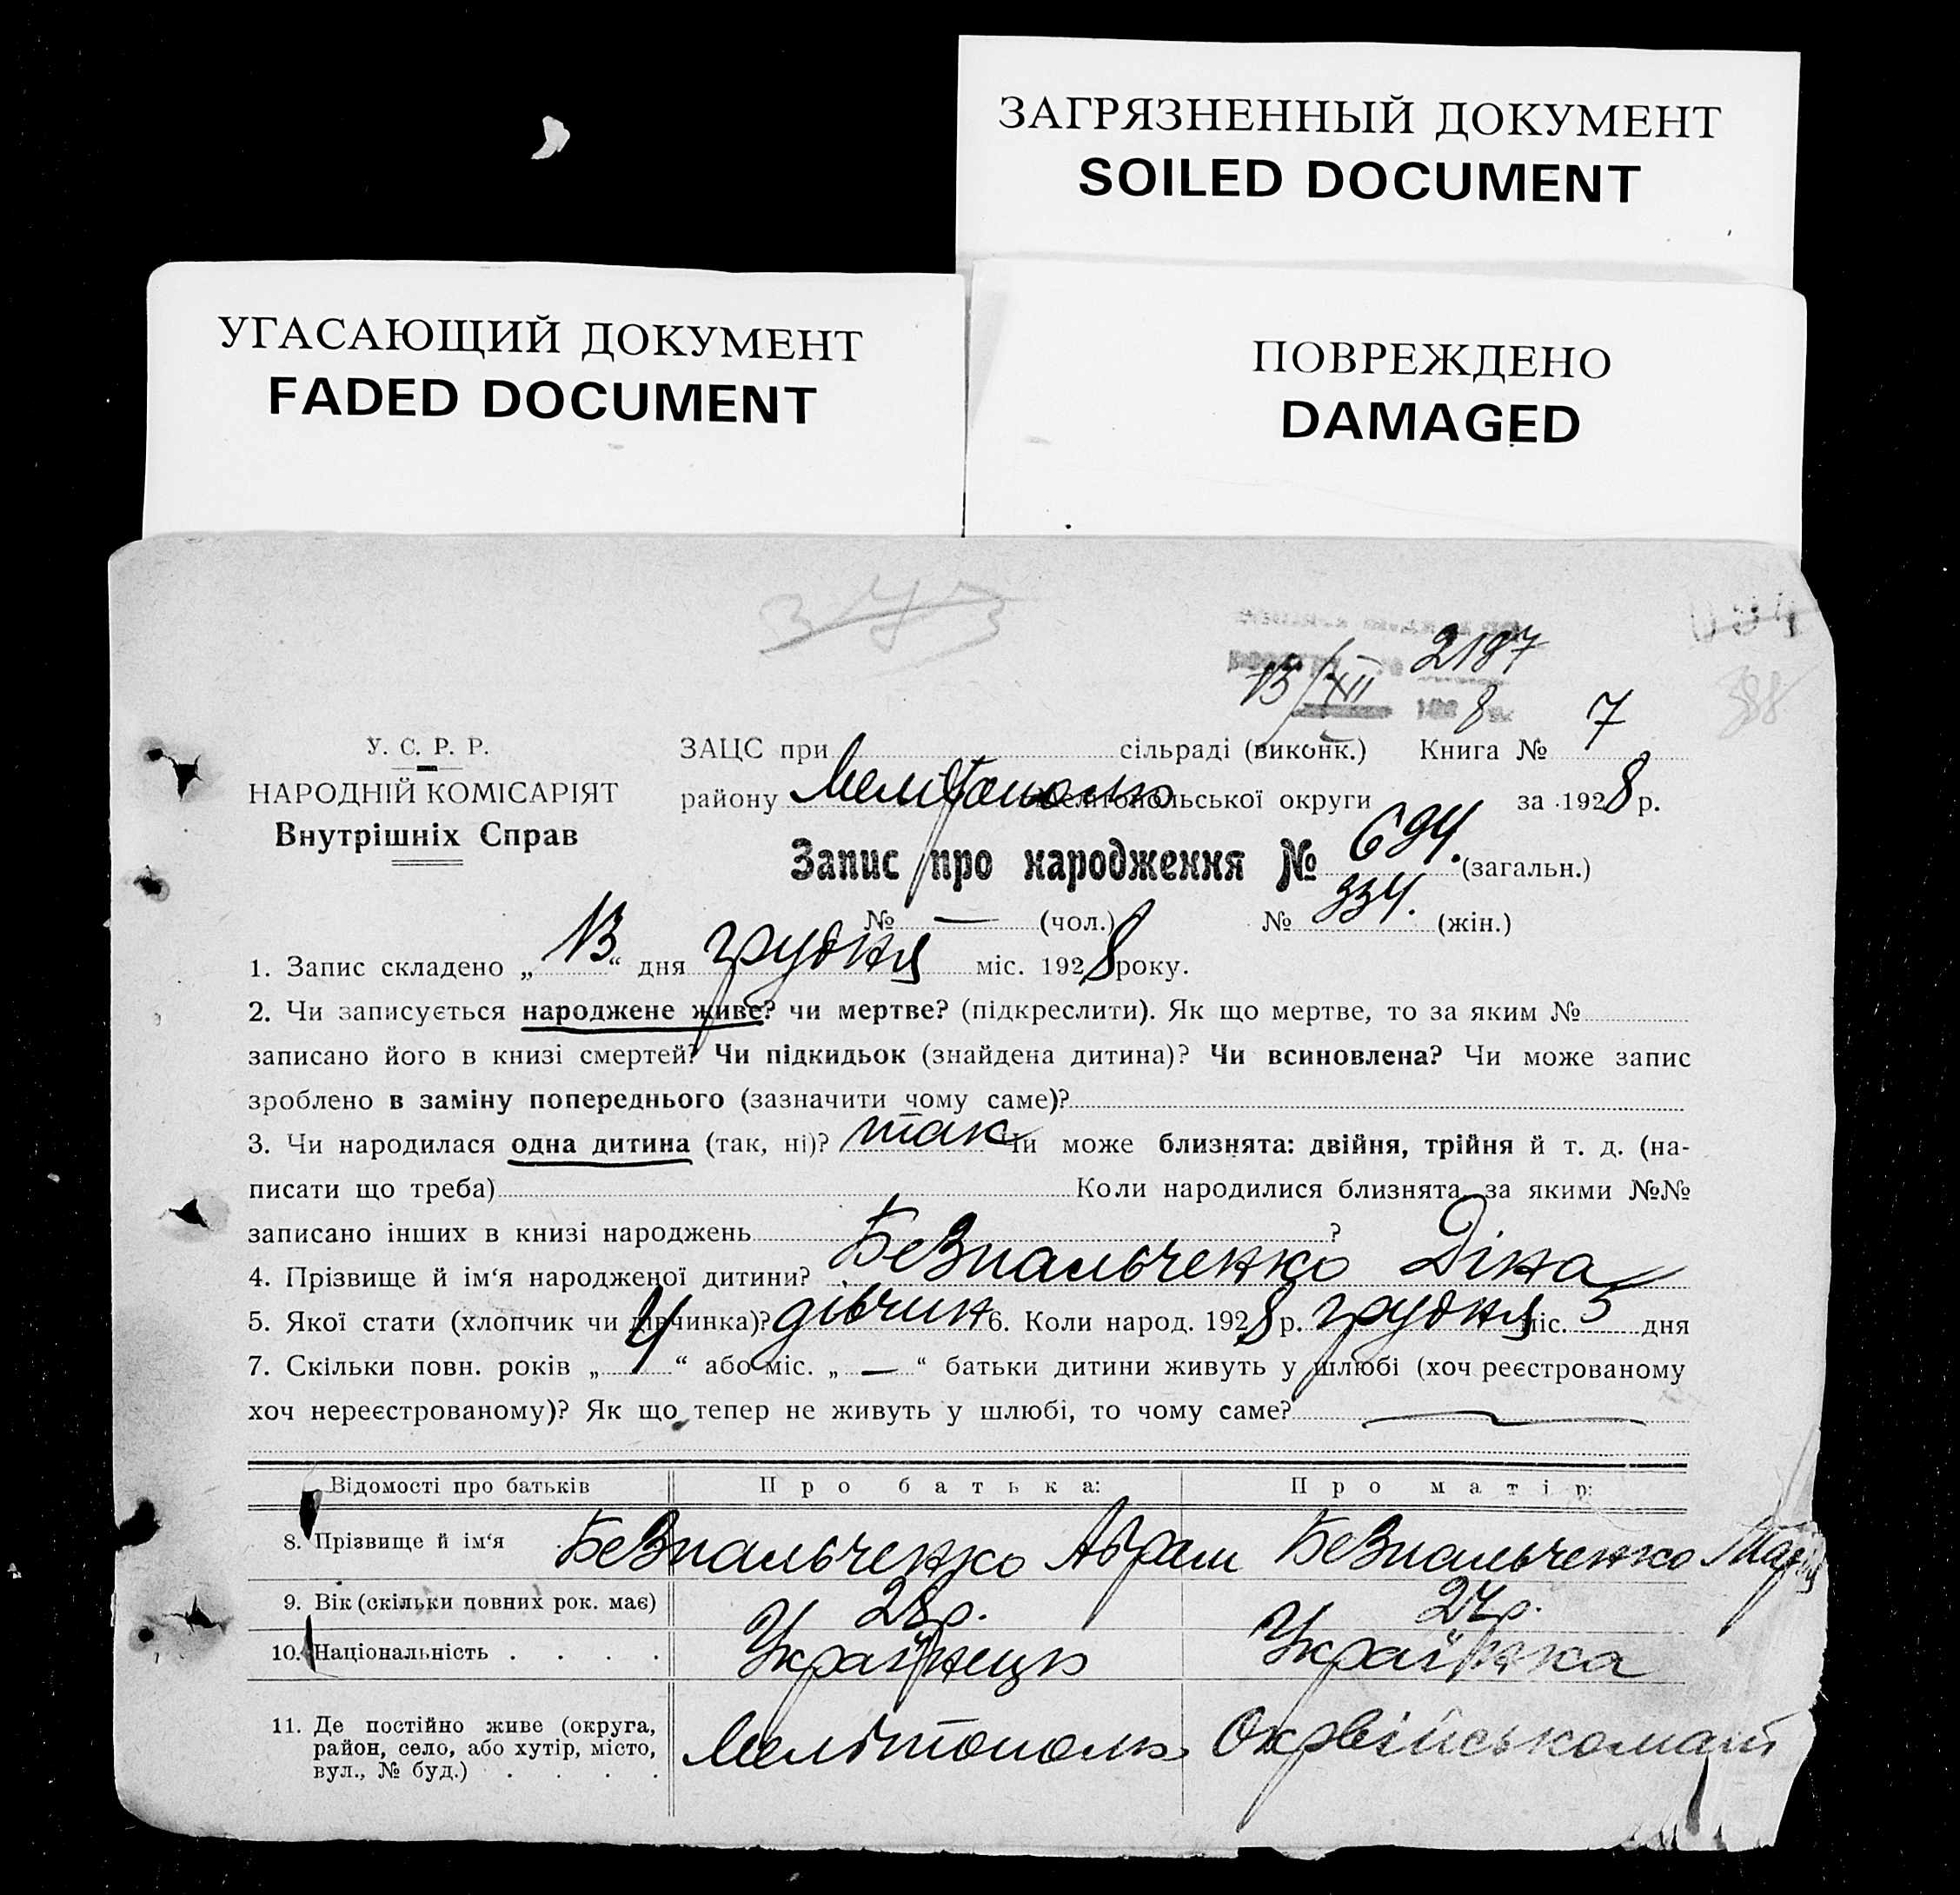 ЗАГРЯЗНЕННЫЙ ДОКУМЕНТ
SOILED DOCUMENT
УГАСАЮЩИЙ ДОКУМЕНТ
FADED DOCUMENT
ПОВРЕЖДЕНО
DAMAGED
373
2187
13/XII 8
388
У. С. Р. Р.
НАРОДНІЙ КОМІСАРІЯТ
Внутрішніх Справ
ЗАЦС при сільраді (виконк.) Книга № 7
району Мелітополю Мелітопольської округи за 1928 р.
Запис про народження № 694. (загальн.)
№ — (чол.) № 334. (жін.)
1. Запис складено „13“ дня грудня міс. 1928 року.
2. Чи записується народжене живе? чи мертве? (підкреслити). Як що мертве, то за яким №
записано його в книзі смертей? Чи підкидьок (знайдена дитина)? Чи всиновлена? Чи може запис
зроблено в заміну попереднього (зазначити чому саме)?
3. Чи народилася одна дитина (так, ні)? так Чи може близнята: двійня, трійня й т. д. (на-
писати що треба) Коли народилися близнята, за якими №№
записано інших в книзі народжень ?
4. Прізвище й ім‘я народженої дитини? Безпальченко Діна
5. Якої стати (хлопчик чи дівчинка)? дівчин 6. Коли народ. 1928 р. грудня міс. 5 дня
7. Скільки повн. років „4“ або міс. „—“ батьки дитини живуть у шлюбі (хоч реєстрованому
хоч нереєстрованому)? Як що тепер не живуть у шлюбі, то чому саме? —
Відомості про батьків Про батька: Про матір:
8. Прізвище й ім‘я Безпальченко Абрам Безпальченко Марія
9. Вік (скільки повних рок. має) 28 р. 24 р.
10. Національність . . . . Українець Українка
11. Де постійно живе (округа,
район, село, або хутір, місто,
вул., № буд.) . . . . Мелітополь Окрвійськомат